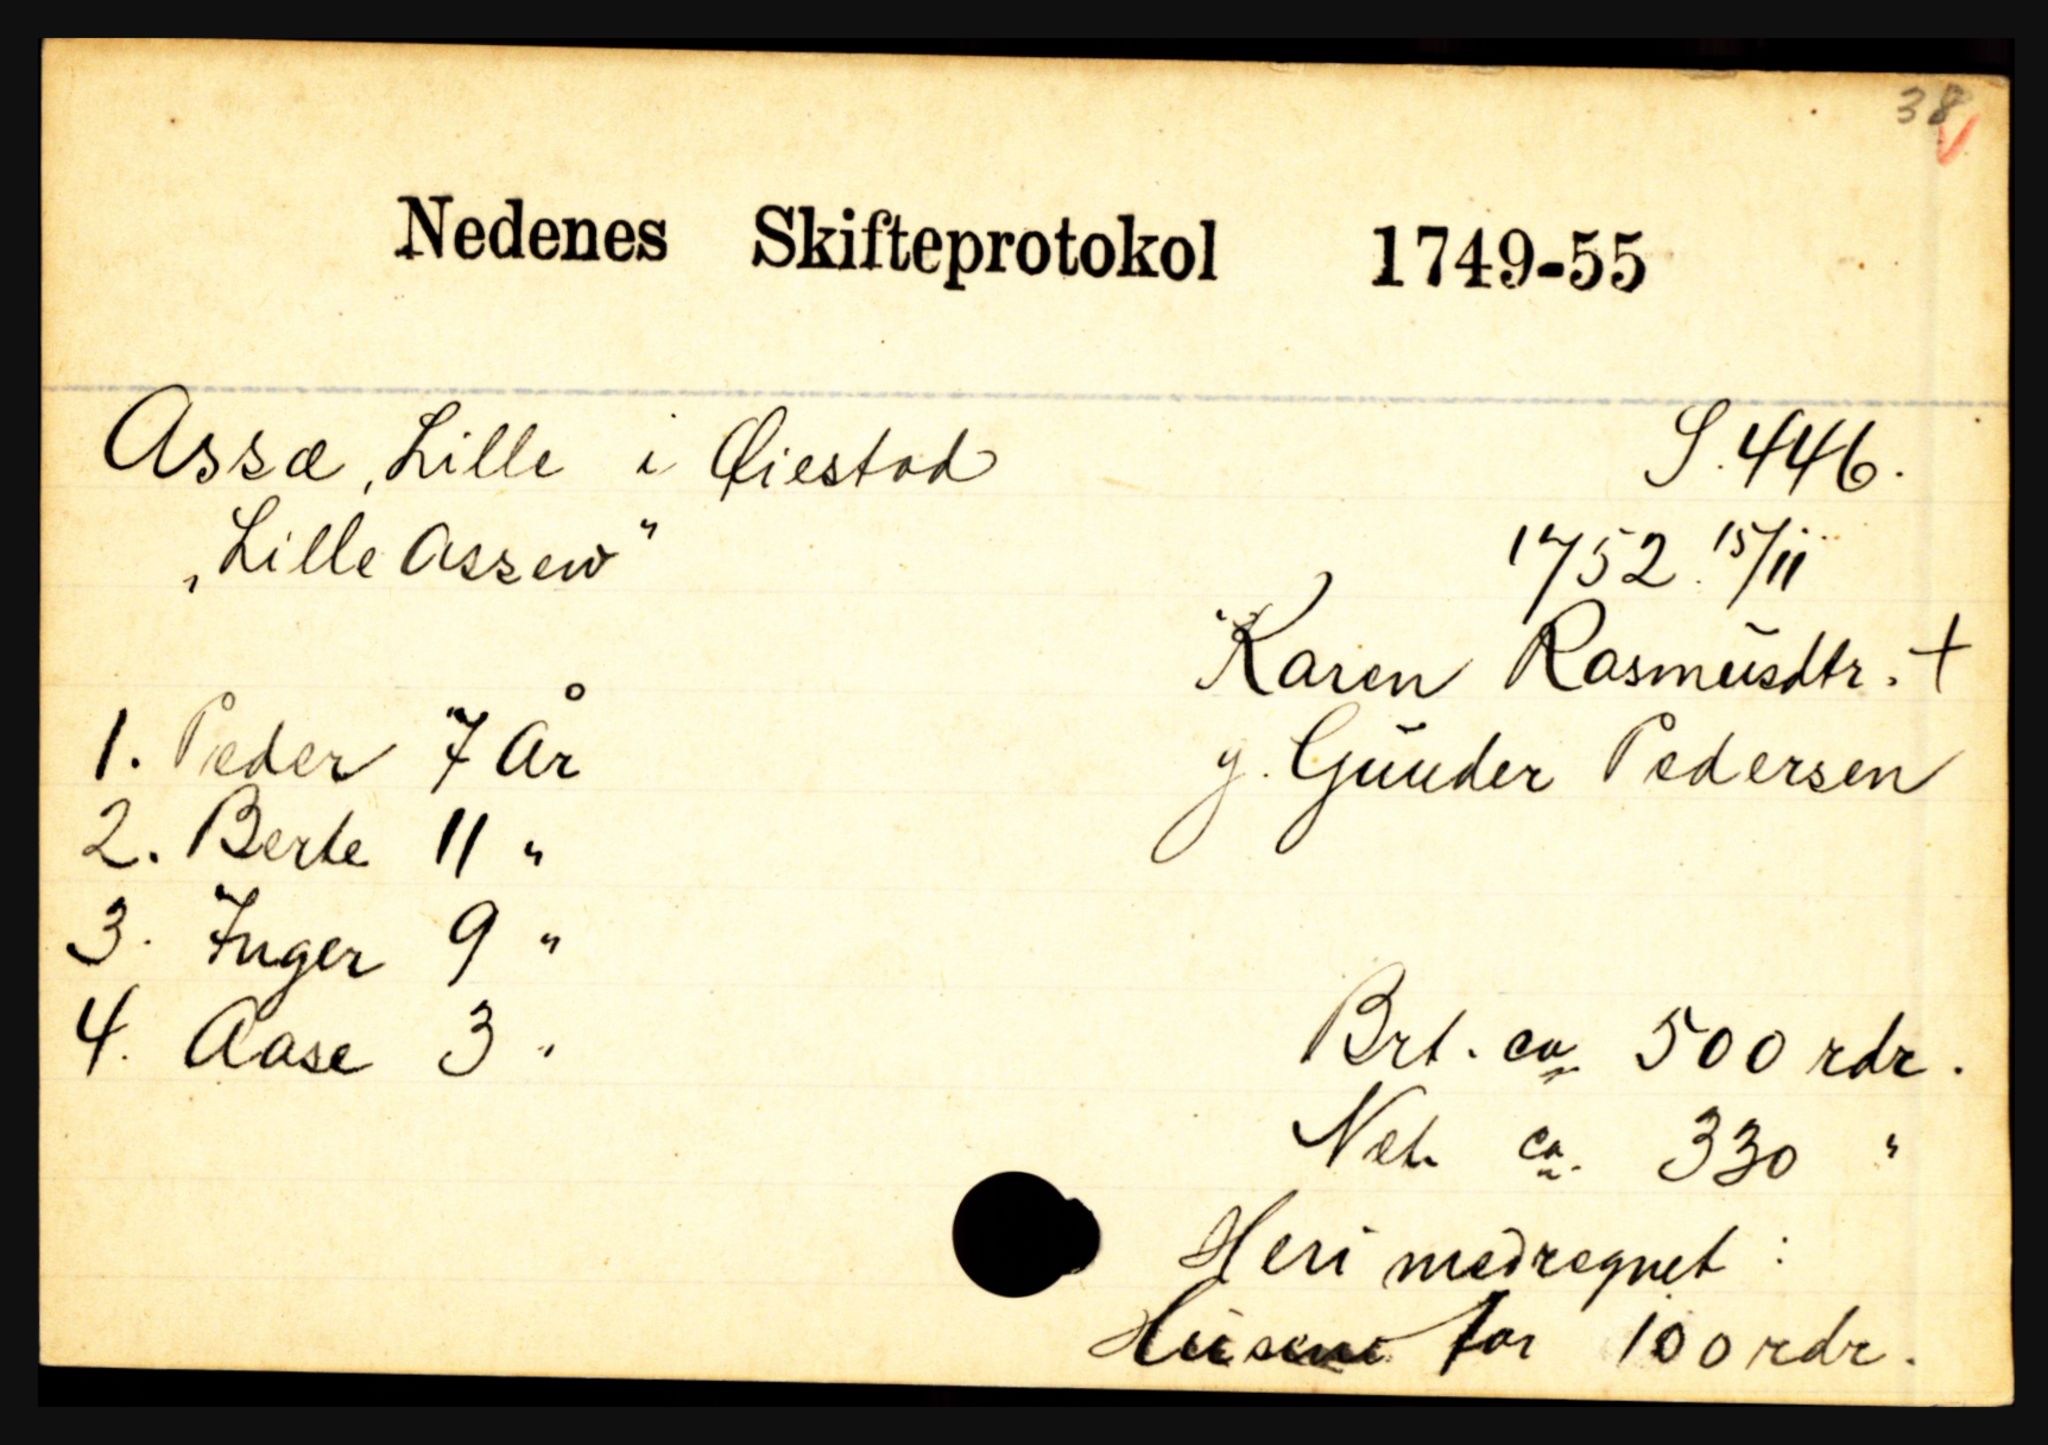 38
Nedenes Skifteprotokol 1749-55
Assæ, Lille i Øiestad S. 446.
„Lille Assew" 1752 15/11
Karen Rasmusdtr. +
1. Peder 7 År g. Gunder Pedersen
2. Berte 11 "
3. Inger 9 "
4. Aase 3 " Brt. ca. 500 rdr.
Net. ca. 330 "
Heri medregnet:
Husene for 100 rdr.